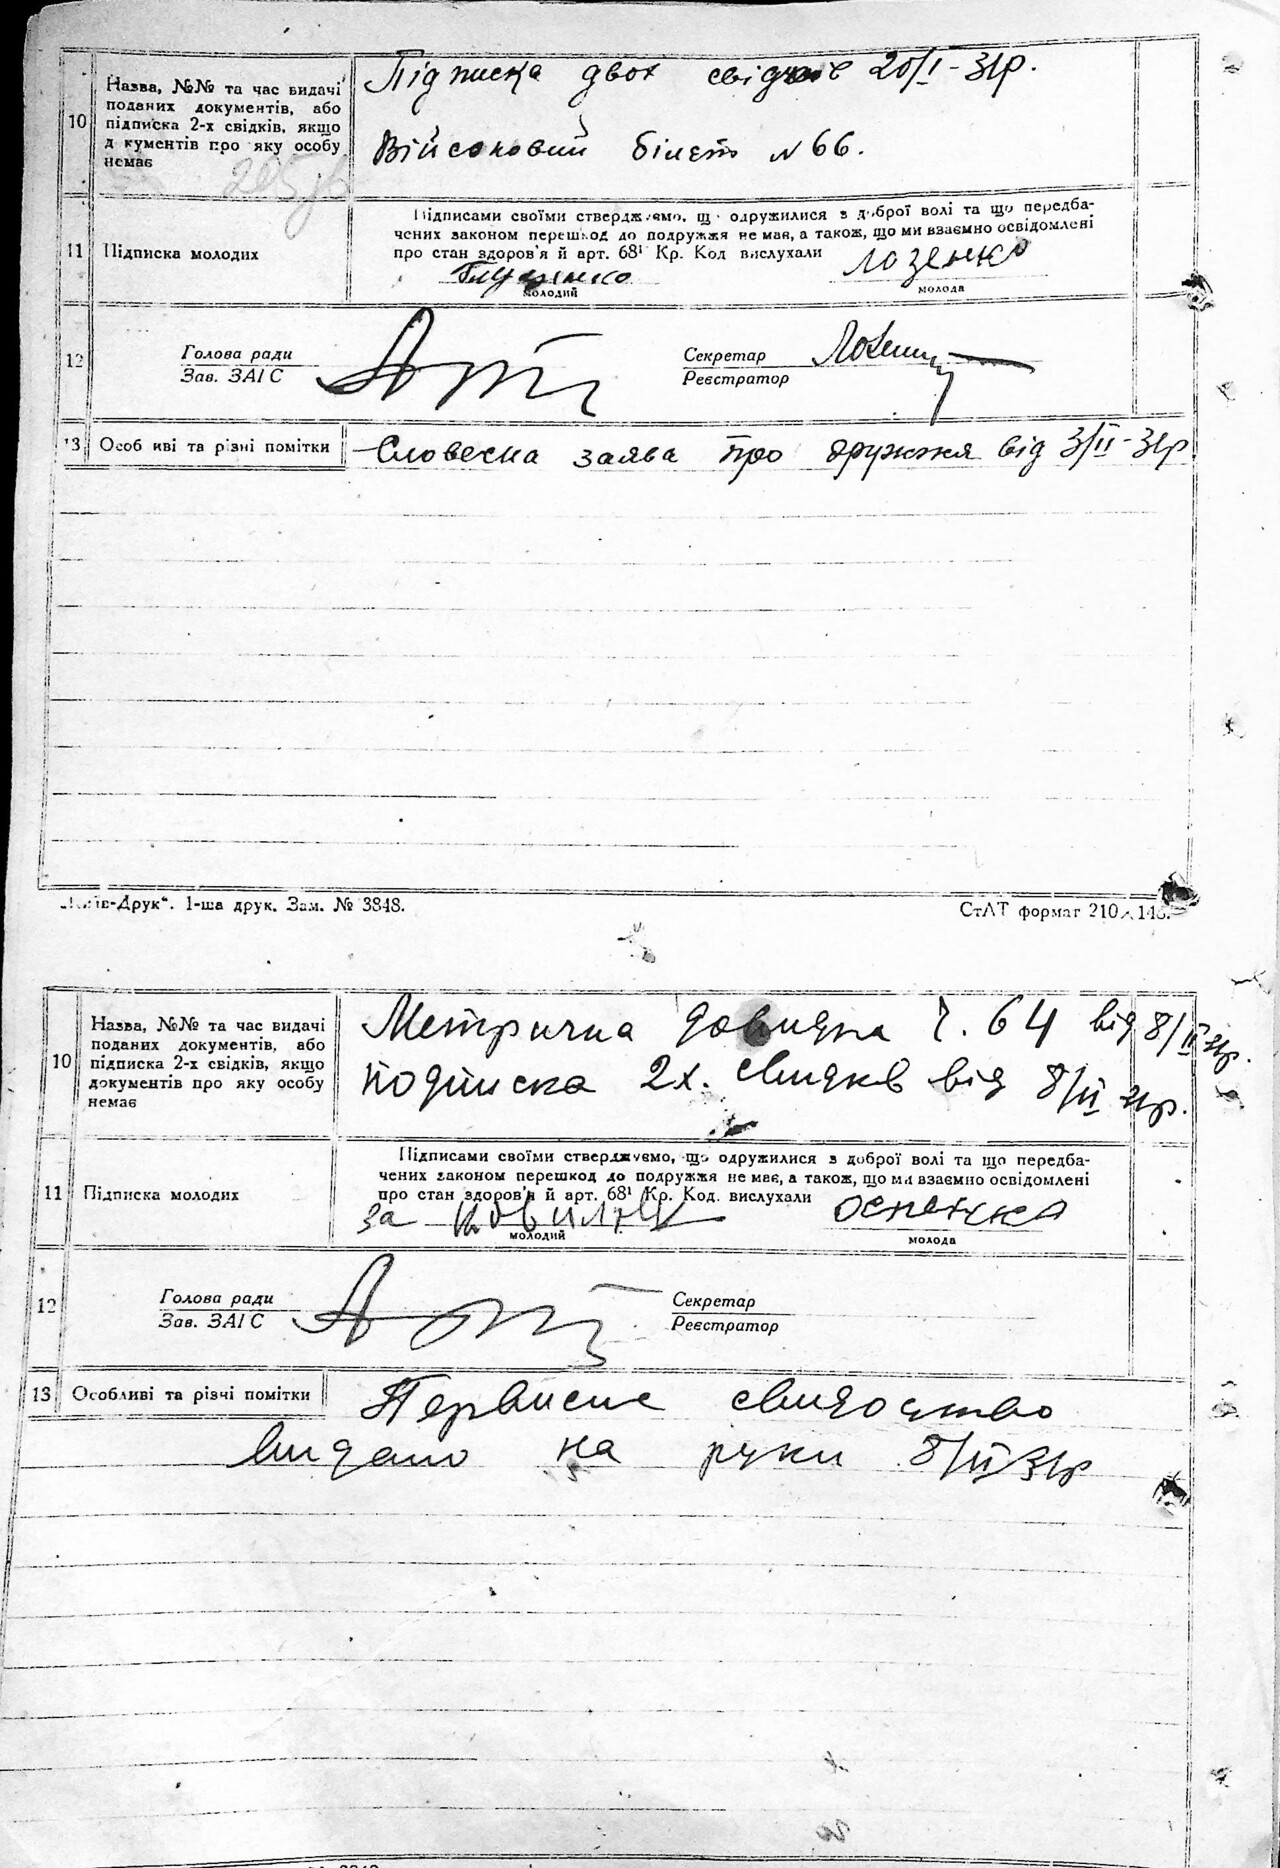 10
Назва, №№ та час видачі
поданих документів, або
підписка 2-х свідків, якщо
д кументів про яку особу
немає
Підписка двох свідків 20/I-31р.
Військовий білет № 66.
11
Підписка молодих
Підписами своїми стверджуємо, що одружилися з доброї волі та що передба-
чених законом перешкод до подружжя не має, а також, що ми взаємно освідомлені
про стан здоров'я й арт. 68¹ Кр. Код вислухали
Лозенко
молодий
молода
12
Голова ради
Зав. ЗАГС
Секретар
Реєстратор
13
Особ иві та різні помітки
Словесна заява про дружжя від 3/II-31р
„Київ-Друк“. 1-ша друк. Зам. № 3848.
СтАТ формат 210×148.
10
Назва, №№ та час видачі
поданих документів, або
підписка 2-х свідків, якщо
документів про яку особу
немає
Метрична довидка ч. 64 від 8/II 31р.
подписка 2х. свидків від 8/II 31р.
11
Підписка молодих
Підписами своїми стверджуємо, що одружилися з доброї волі та що передба-
чених законом перешкод до подружжя не має, а також, що ми взаємно освідомлені
про стан здоров'я й арт. 68¹ Кр. Код. вислухали
за
молодий
молода
12
Голова ради
Зав. ЗАГС
Секретар
Реєстратор
13
Особливі та різні помітки
Первисне свидоцтво
видано на руки 8/II 31р